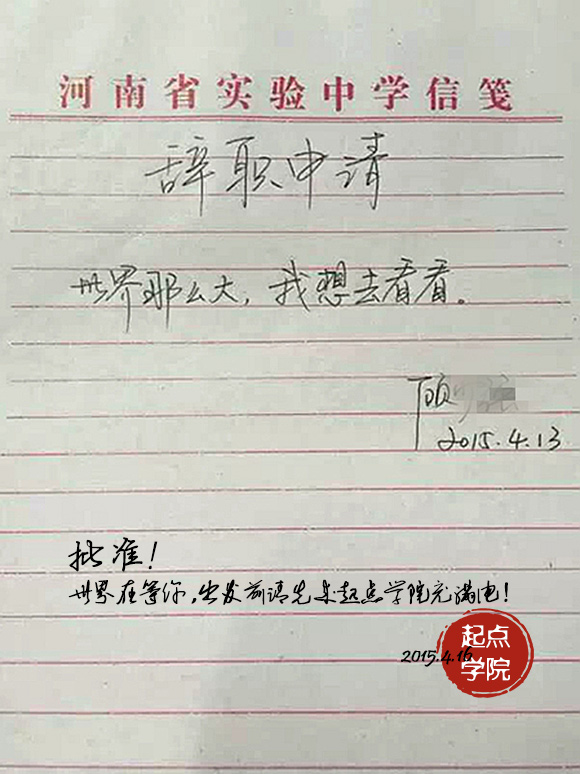 河南省实验中学信笺
辞职申请
世界那么大，我想去看看。
顾
2015.4.13
批准！
世界在等你，出发前请先来起点学院充满电！
2015.4.16
起点
学院